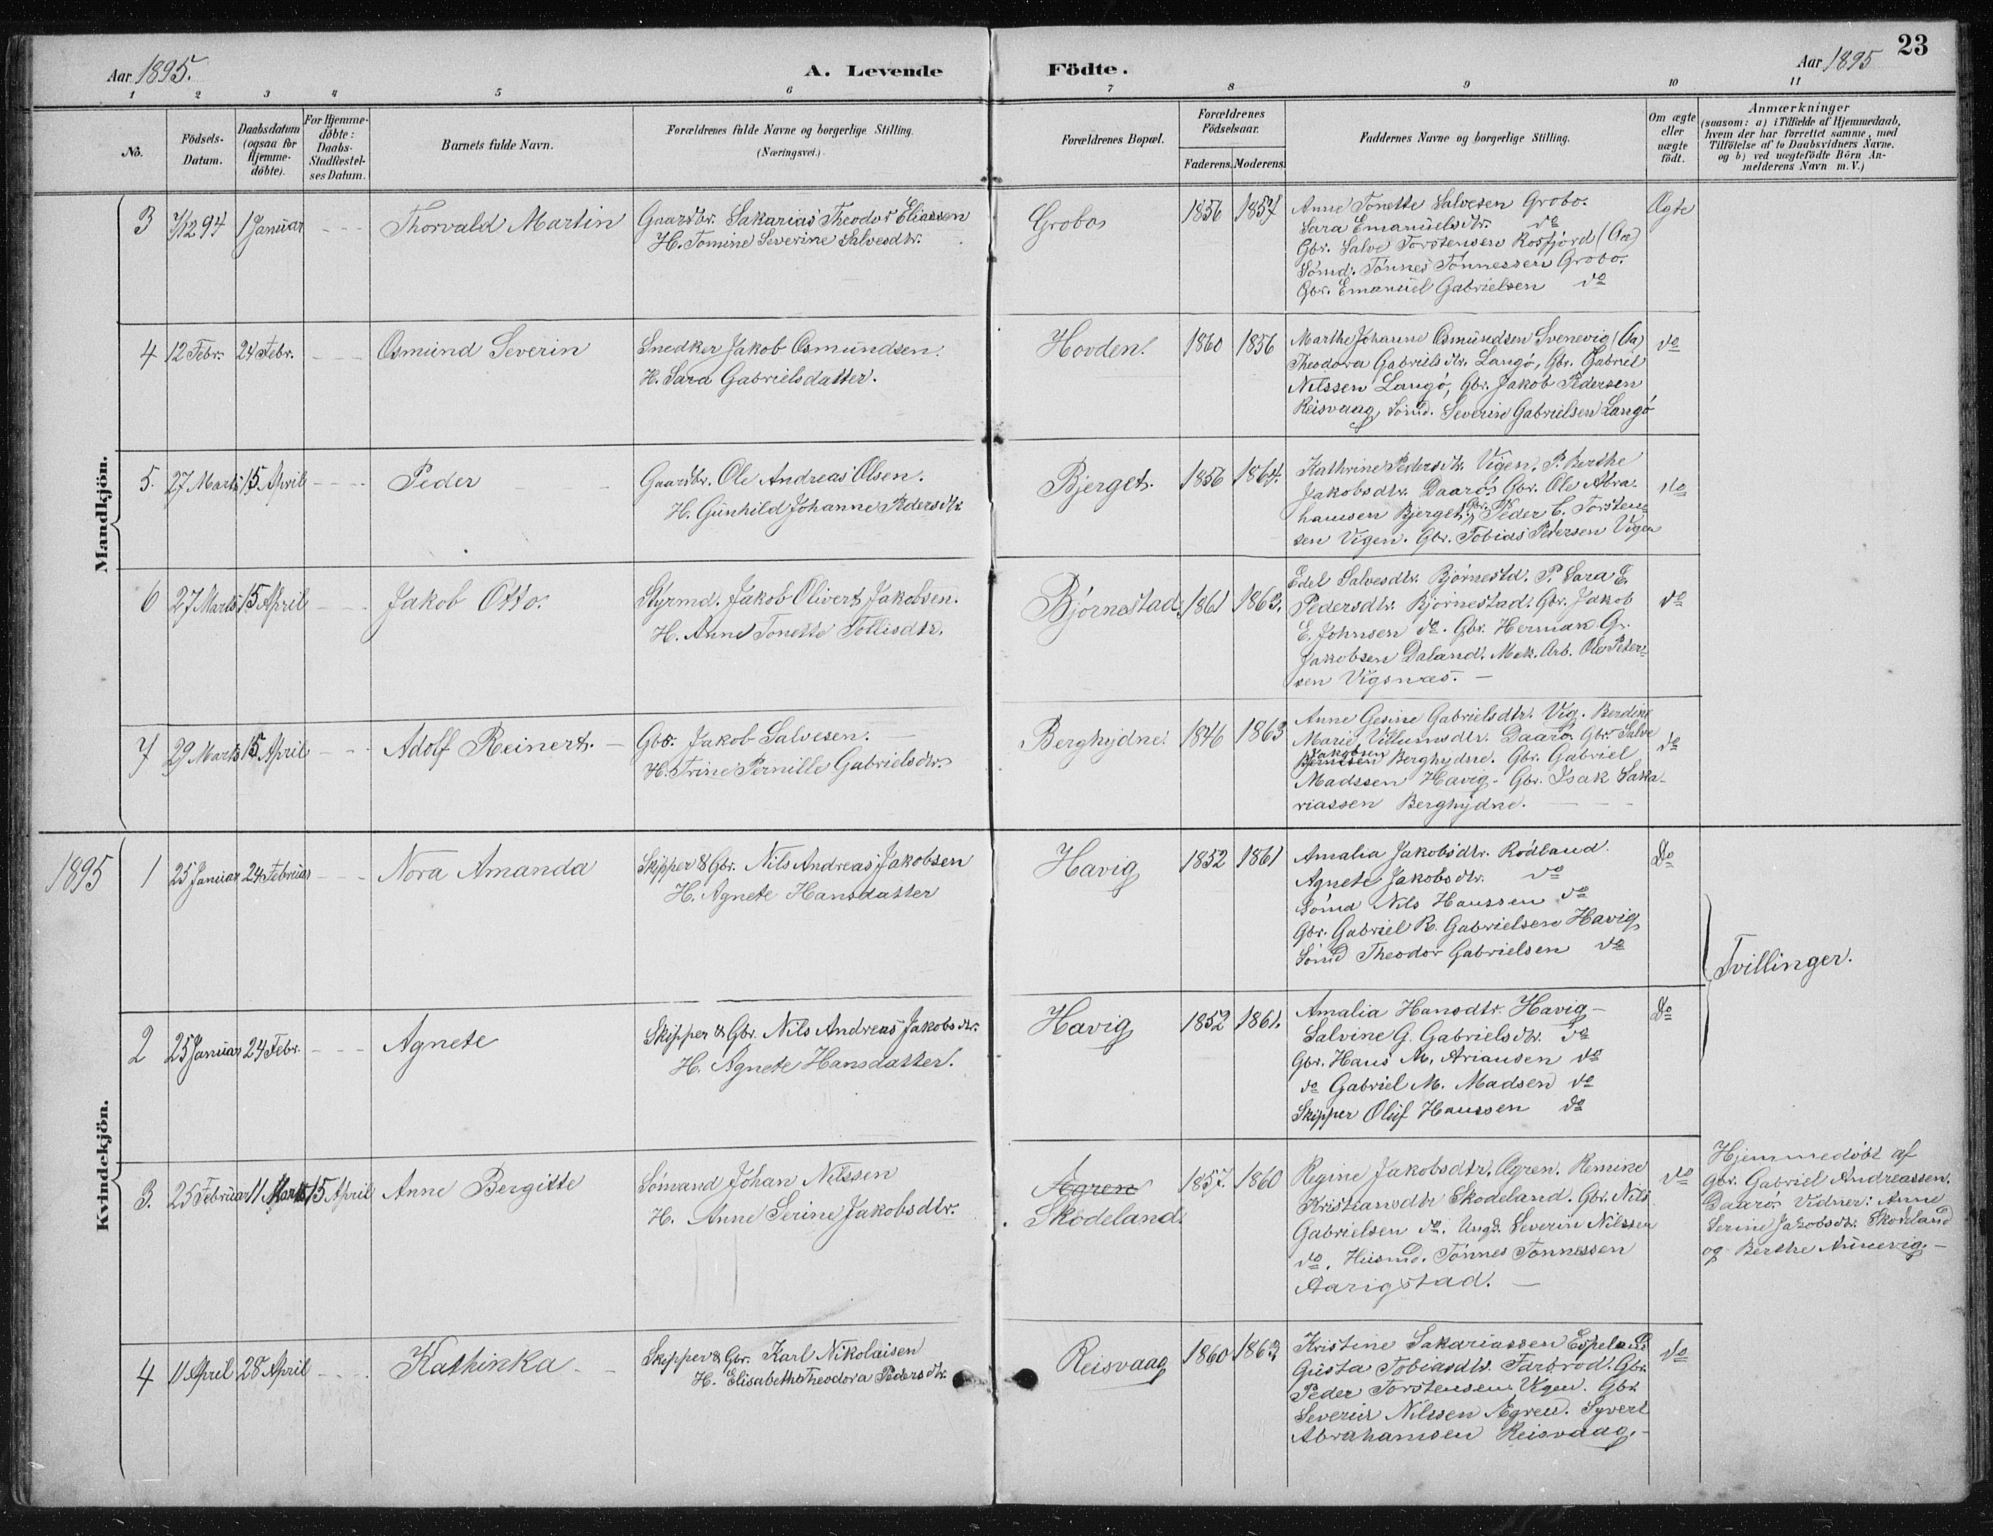 23
Aar 1895.
A. Levende Födte.
Aar 1895
1 2 3 4 5 6 7 8 9 10 11
No.
Födsels-
Datum.
Daabsdatum
(ogsaa for
Hjemme-
döbte).
For Hjemme-
döbte:
Daabs-
Stadfæstel-
ses Datum.
Barnets fulde Navn.
Forældrenes fulde Navne og borgerlige Stilling.
(Næringsvei.)
Forældrenes Bopæl.
Forældrenes
Födselsaar.
Faderens. Moderens.
Faddernes Navne og borgerlige Stilling.
Om ægte
eller
uægte
födt.
Anmærkninger
(saasom: a) i Tilfælde af Hjemmedaab,
hvem der har forrettet samme, med
Tilföielse af to Daabsvidners Navne,
og b) ved uægtefödte Börn An-
melderens Navn m. V.)
Mandkjön.
3 7/12 94 1 Januar Thorvald Martin
Gaardbr. Sakarias Theodor Eliassen
H. Tomine Severine Salvesdtr.
Grobos 1856 1857
Anne Tonette Salvesen Grobo.
Sara Emanuelsdtr. do
Gbr. Salve Torstensen Rosfjord (Aa)
Sömd. Tönnes Tönnessen Grobo.
Gbr. Emanuel Gabrielsen do
Ægte
4 12 Febr. 24 Febr. Osmund Severin
Snedker Jakob Osmundsen.
H. Sara Gabrielsdatter.
Hovden. 1860 1856
Marthe Johanne Osmundsen Svenevig (Aa)
Theodora Gabrielsdtr. Langö, Gbr. Gabriel
Nilssen Langö, Gbr. Jakob Pedersen
Reisvaag, Sömd. Severin Gabrielsen Langö
do
5. 27 Marts 15 April Peder
Gaardbr. Ole Andreas Olsen.
H. Gunhild Johanne Pedersdtr.
Bjerget. 1856 1864.
Kathrine Pedersdtr. Vigen. P. Berthe
Jakobsdtr. Daarö, Gbr. Ole Abra-
hamsen Bjerget, Gbr. Peder C. Torsten-
sen Vigen. Gbr. Tobias Pedersen Vigen
do
6 27 Marts 15 April Jakob Otto.
Styrmd. Jakob Olivert Jakobsen.
H. Anne Tonette Tollisdtr.
Björnestad. 1861 1863.
Edel Salvesdtr. Björnestd. P. Sara E.
Pedersdtr. Björnestad. Gbr. Jakob
E. Johnsen do. Gbr. Herman Gr.
Jakobsen Daland. Mek. Arb. Ole Peter-
sen Vigsnæs. —
do
7 29 Marts 15 April Adolf Reinert. —
Gbr. Jakob Salvesen. —
H. Trine Pernille Gabrielsdtr.
Berghydne. 1846 1863
Anne Gesine Gabrielsdtr. Vig. Berdine
Marie Villumsdtr. Daarö. Gbr. Salve
Jakobsen
Berghydne. Gbr. Gabriel
Madssen Havig. Gbr. Isak Saka-
riassen Berghydne.
do
Kvindekjön.
1895 1 25 Januar 24 Februar Nora Amanda
Skipper & Gbr. Nils Andreas Jakobsen
H. Agnete Hansdatter
Havig 1852 1861
Amalia Jakobsdtr. Rödland.
Agnete Jakobsdtr. do
Sömd Nils Hanssen do
Gbr. Gabriel R. Gabrielsen Havig
Sömd Theodor Gabrielsen do
Do
Tvillinger.
2 25 Januar 24 Febr. Agnete
Skipper & Gbr. Nils Andreas Jakobsdtr.
H. Agnete Hansdatter.
Havig 1852 1861.
Amalia Hansdtr. Havig —
Salvine G. Gabrielsdtr. do
Gbr. Hans M. Ariansen do
do Gabriel M. Madsen do
Skipper Oluf Hanssen do
Do
3. 25 Februar 11 Marts 15 April Anne Bergitte
Sömand Johan Nilssen
H. Anne Serine Jakobsdtr.
Ægren
Skodeland. 1857. 1860
Regine Jakobsdtr. Ægren. Remine
Kristiansdtr Skodeland. Gbr. Nils
Gabrielsen do. Ungk. Severin Nilssen
do. Husmd. Tönnes Tönnessen
Aarigstad. —
do
Hjemmedöbt af
Gbr. Gabriel Andreassen.
Daarö. Vidner: Anne
Serine Jakobsdtr. Skodeland
og Berthe Nunevig. —
4 11 April 28 April Kathinka
Skipper & Gbr. Karl Nikolaisen
H. Elisabeth Theodora Pedersdtr.
Reisvaag 1860 1863,
Kristine Sakariassen Espeland
Gusta Tobiasdtr. Farbrod. Gbr.
Peder Torstensen Vigen. Gbr.
Severin Nilssen Ægren. Syvert
Abrahamsen Reisvaag. —
do